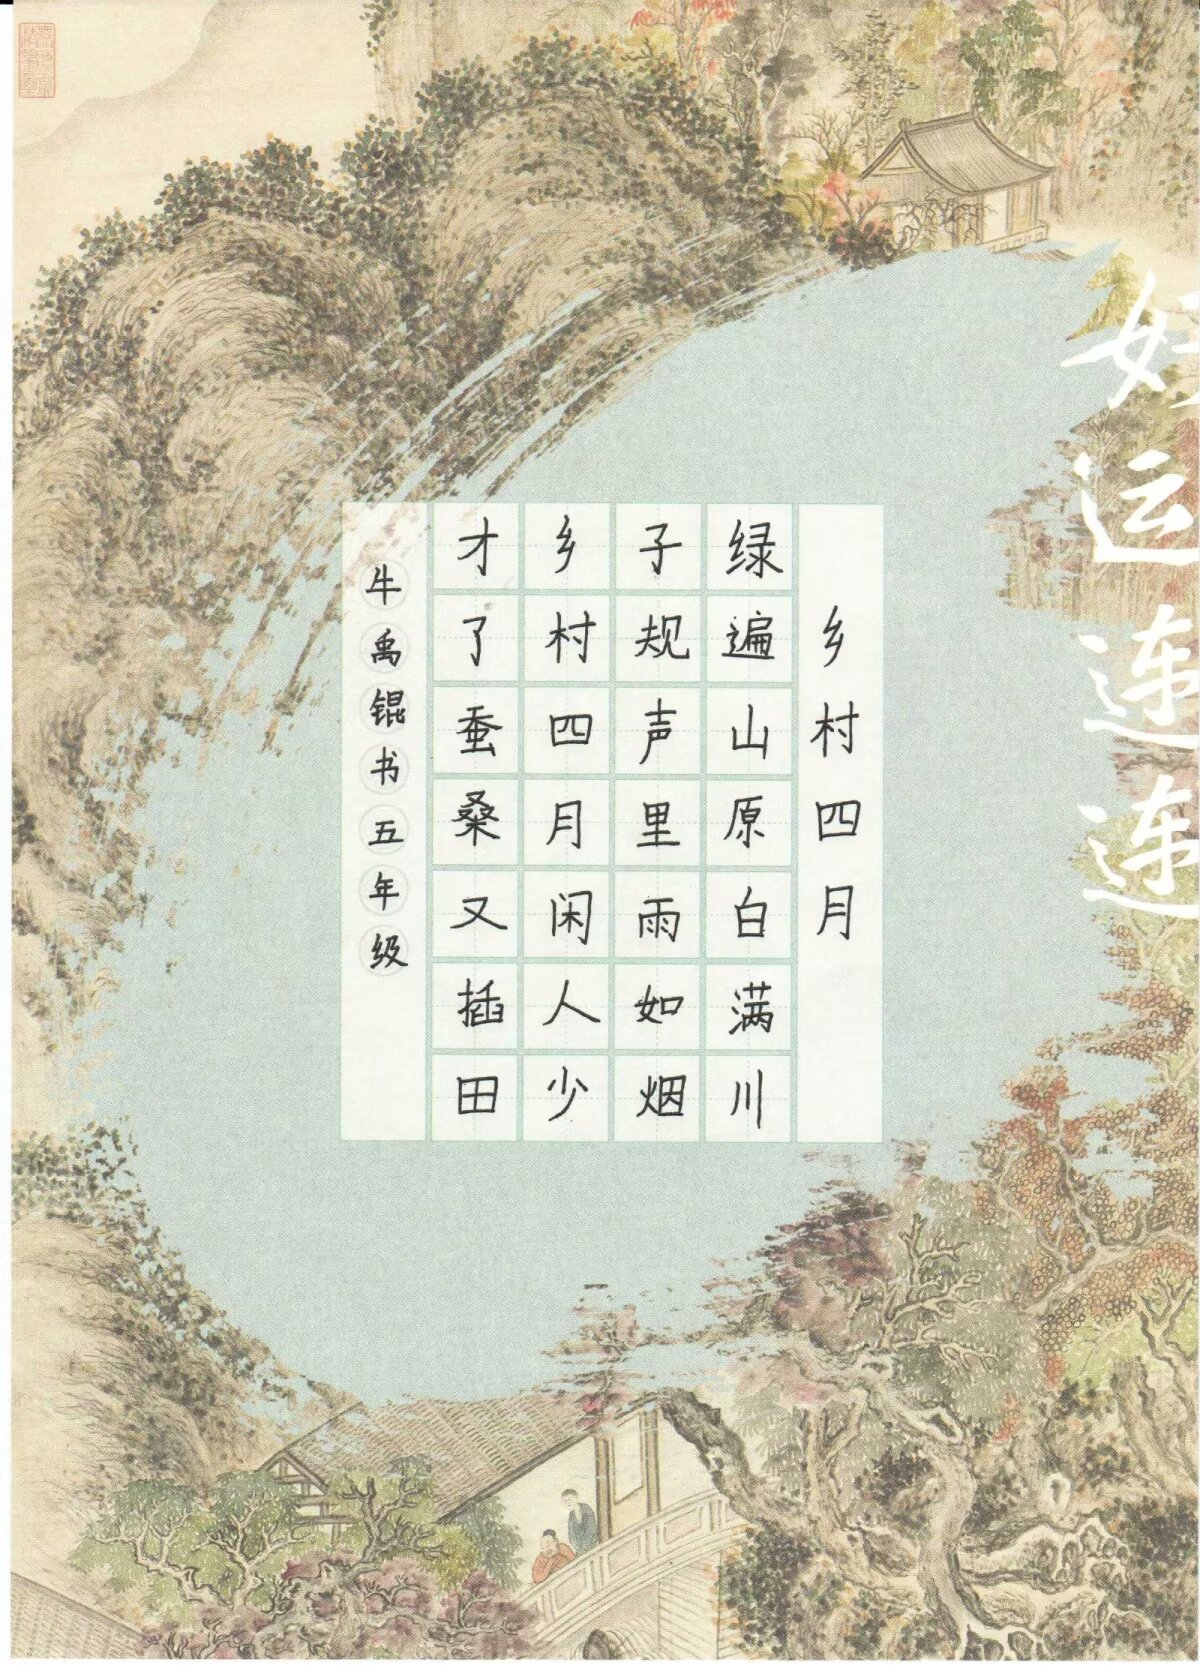 好运连连
乡村四月
绿遍山原白满川
子规声里雨如烟
乡村四月闲人少
才了蚕桑又插田
牛禹锟书五年级